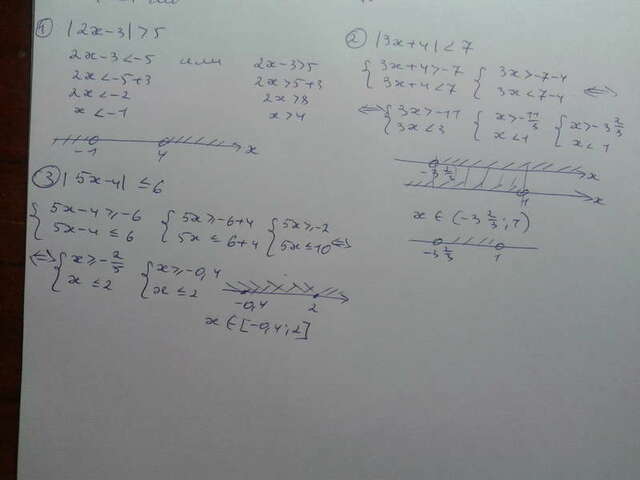 1 |2x-3|>5
2x-3<-5 или 2x-3>5
2x<-5+3 2x>5+3
2x<-2 2x>8
x<-1 x>4
-1 4 x
2 |3x+4|<7
{3x+4>-7 {3x>-7-4
{3x+4<7 {3x<7-4 <=>
<=> {3x>-11 {x>-11/3 {x>-3 2/3
{3x<3 {x<1 {x<1
-3 2/3 x
1 x
x∈(-3 2/3; 1)
-3 2/3 1
3 |5x-4|≤6
{5x-4≥-6 {5x≥-6+4 {5x≥-2
{5x-4≤6 {5x≤6+4 {5x≤10 <=>
<=> {x≥-2/5 {x≥-0,4
{x≤2 {x≤2
-0,4 2
x∈[-0,4;2]